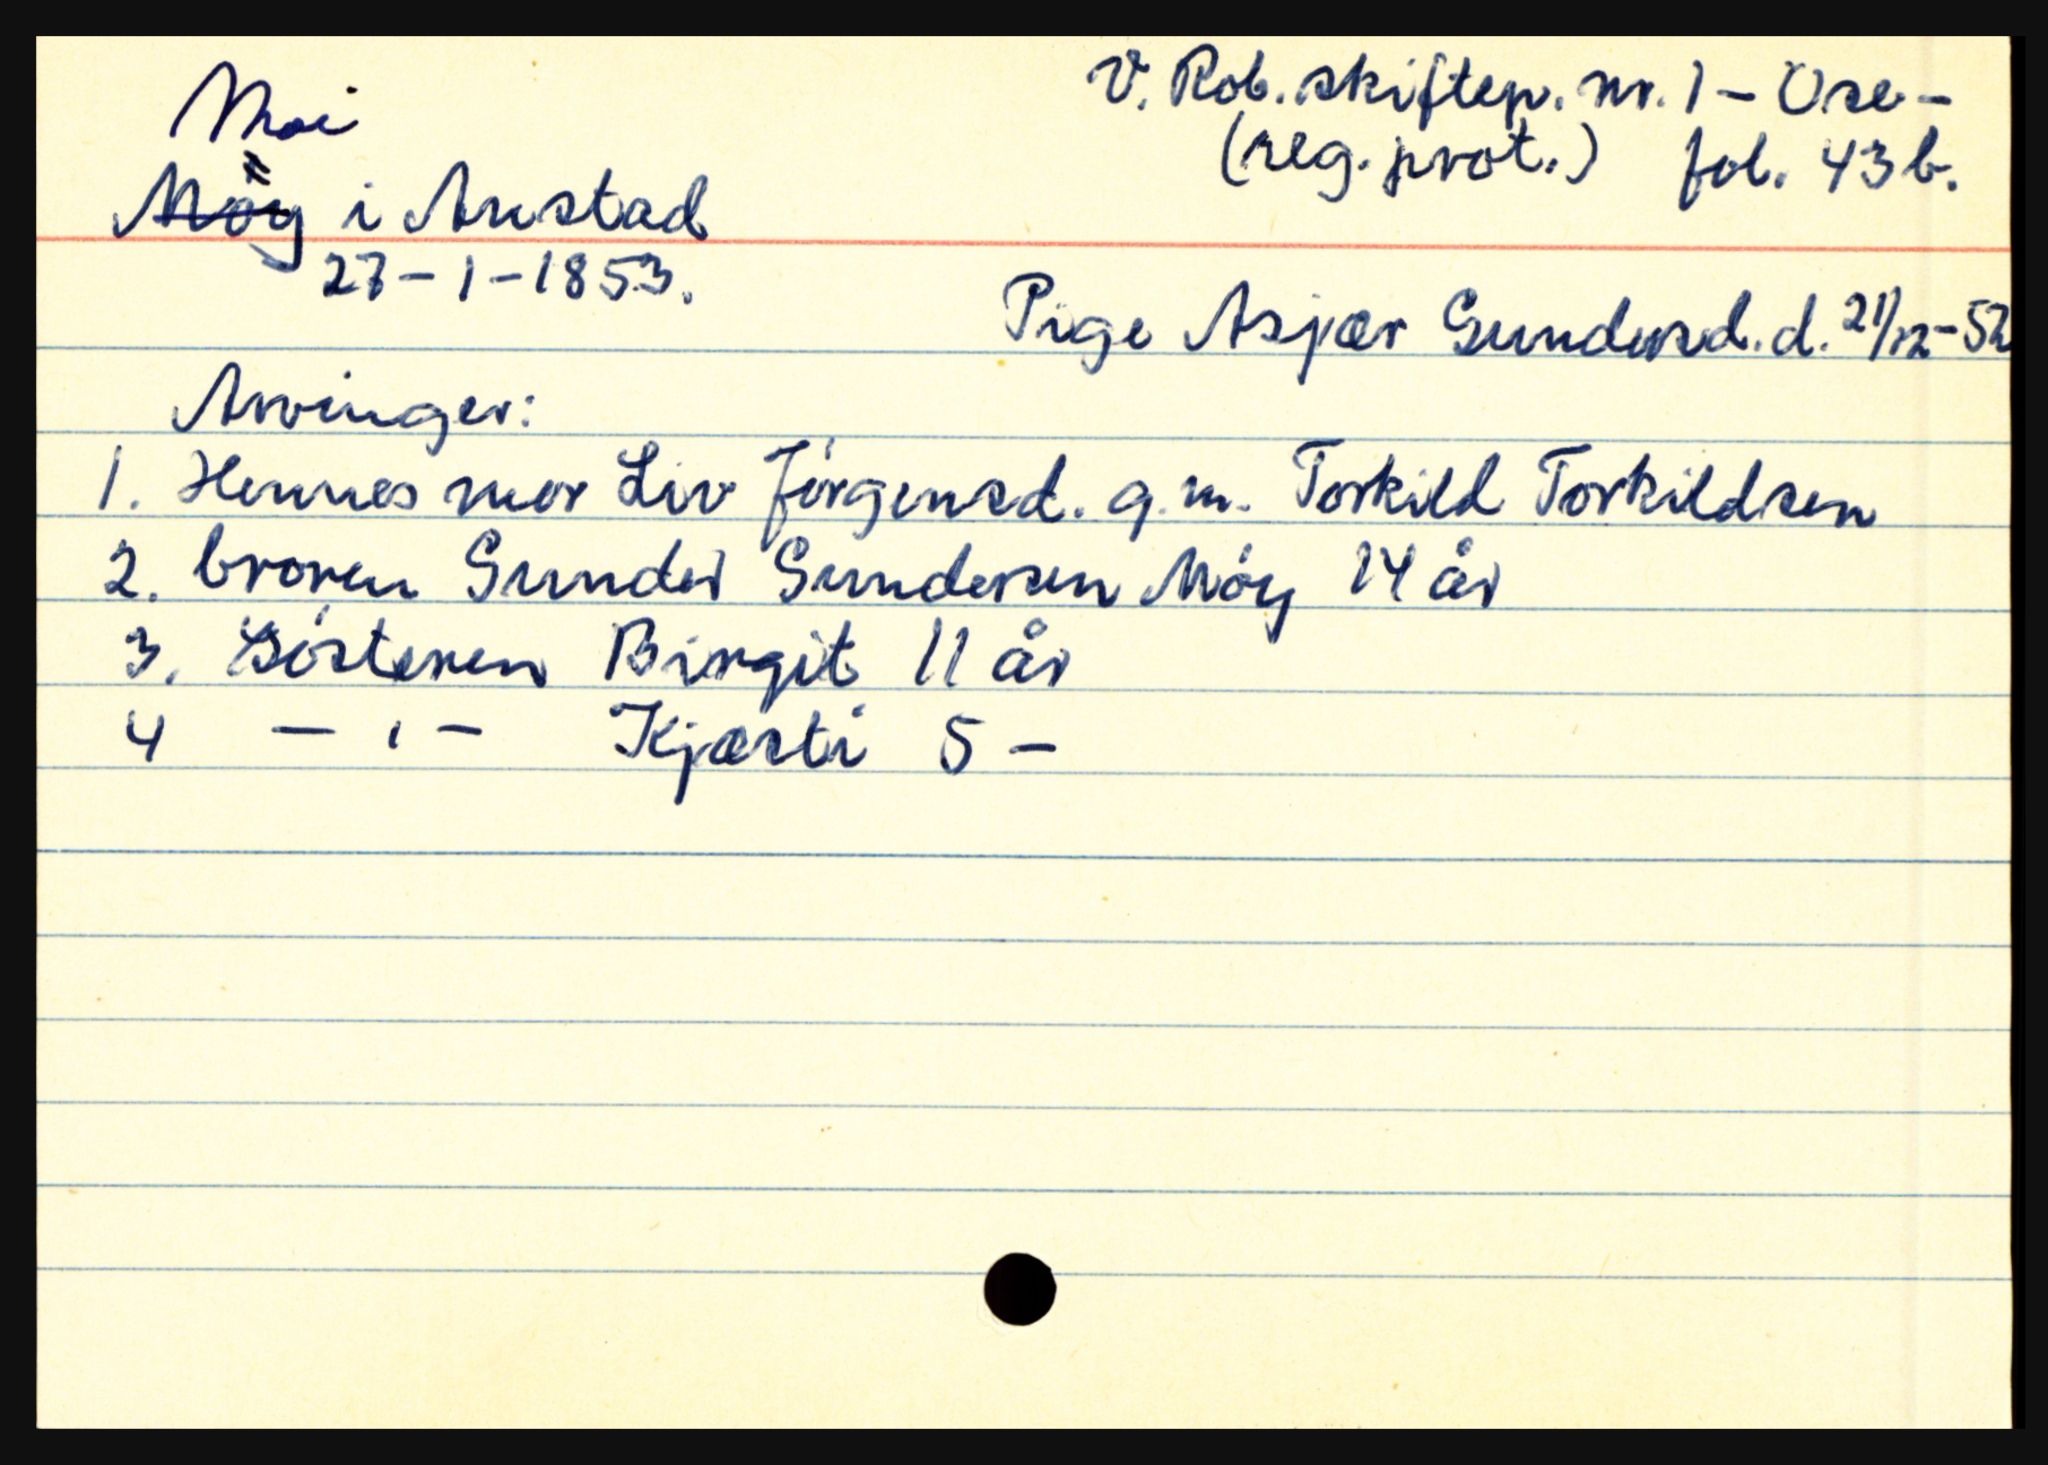 Moi
V. Rob. skiftep. nr. 1 - Ose -
(reg. prot.) fol. 43 b.
Möy i Austad
27 - 1 - 1853.
Pige Asjær Gundersd. d. 21/12 - 52
Arvinger:
1. Hennes mor Liv Jörgensd. g. m. Torkild Torkildsen
2. broren Gunder Gundersen Möy 14 år
3. Sösteren Birgit 11 år
4 - " - Kjæsti 5 -